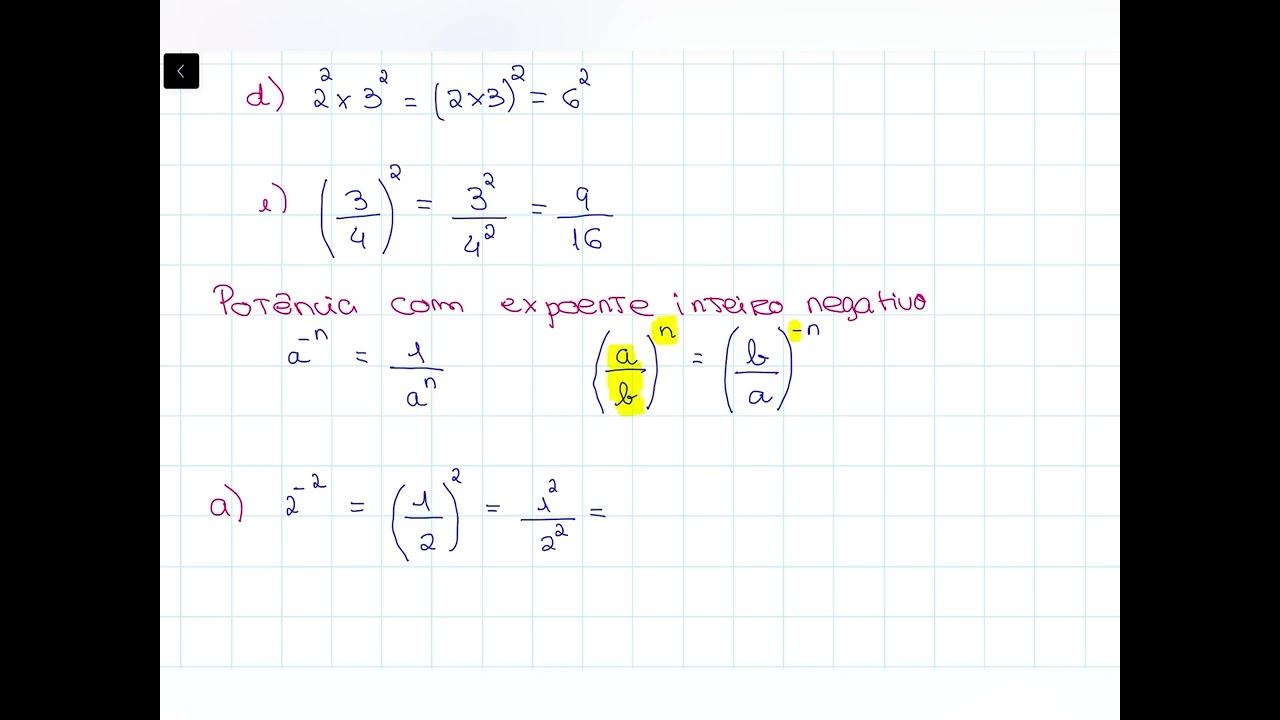 d) 2² x 3² = (2x3)² = 6²
e) (3/4)² = 3²/4² = 9/16
Potência com expoente inteiro negativo
a⁻ⁿ = 1/aⁿ (a/b)ⁿ = (b/a)⁻ⁿ
a) 2⁻² = (1/2)² = 1²/2² =